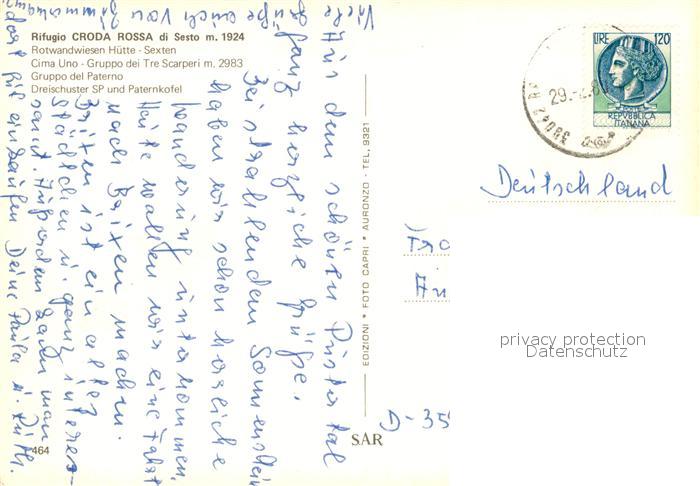 Rifugio CRODA ROSSA di Sesto m. 1924
Rotwandwiesen Hütte - Sexten
Cima Uno - Gruppo dei Tre Scarperi m. 2983
Gruppo del Paterno
Dreischuster SP und Paternkofel
Aus dem schönen Pustertal
ganz herzliche Grüße.
Bei strahlendem Sonnenschein
haben wir schon herrliche
Wanderung unternommen.
Heute wollen wir eine Fahrt
nach Brixen machen.
Brixen ist ein altes
Städtchen u. ganz interes-
sant. Außerdem kann man
dort gut einkaufen Deine Paula u. Ruth.
Viele Grüße auch von
464
EDIZIONI * FOTO CAPRI * AURONZO - TEL. 9321
SAR
LIRE 120
REPVBBLICA
ITALIANA
29.
38042
Deutschland
Fra
An
D-35
privacy protection
Datenschutz